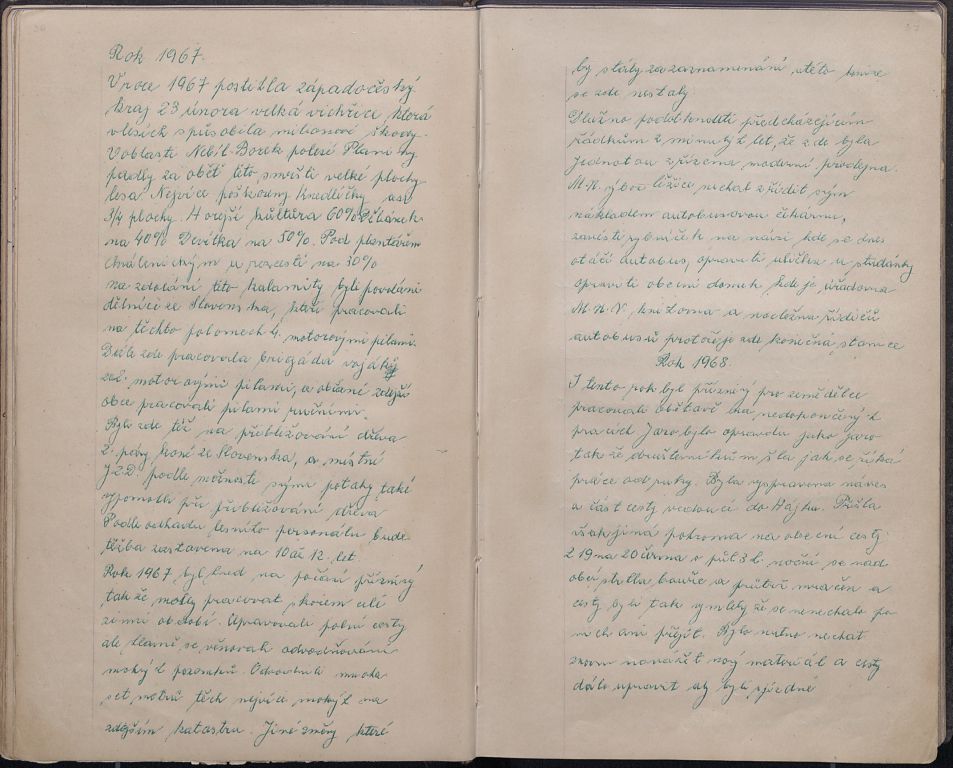 Rok 1967.
V roce 1967 postihla západočeský
kraj 23 února velká vichřice která
v lesích spůsobila milionové škody.
V oblasti Nebíl-Borek polesí Planiny
padly za oběť této smršti velké plochy
lesa Nejvíce poškozeny Knedlíčky asi
3/4 plochy. Hořejší kultura 60%
na 40% Devítka na 50%. Pod plantážem
u rozcestí na 30%
na zdolání této kalamity byli povoláni
dělníci ze Slovenska, kteří pracovali
na těchto polomech 4. motorovými pilami.
Dále zde pracovala brigáda vojáků
se 2. motorovými pilami, a občané zdejší
obce pracovali pilami ručními.
Bylo zde též na přibližování dřeva
2. páry koní ze Slovenska, a místní
J.Z.D. podle možnosti svými potahy také
vypomohli při přibližování dřeva
Podle odhadu lesního personálu bude
těžba zastavena na 10 až 12. let.
Rok 1967 byl hned na počasí příznivý
tak že mohly pracovat skorem celé
zimní období. Upravovali polní cesty
ale hlavně se věnovali odvodňování
mokrých pozemků. Odvodnili mnoho
set metrů těch nejvíce mokrých na
zdejším katastru. Jiné změny které
by stály za zaznamenání v této knize
se zde nestaly.
Dlužno podotknouti předcházejícím
řádkům z minulých let, že zde byla
Jednotou zřízena moderní prodejna.
M.N. výbor Lišice nechal zřídit svým
nákladem autobusovou čekárnu,
zavésti rybníček na návsi, kde se dnes
otáčí autobus, opraviti uličku u studánky
opraviti obecní domek, kde je úřadovna
M.N.V., knihovna a nocležna řidičů
autobusů protože je zde konečná stanice
Rok 1968.
I tento rok byl příznivý pro zemědělce
pracovali obětavě na nedokončených
pracích Jaro bylo opravdu jako jaro
tak že družstevníkům šla jak se říká
práce od ruky. Byla vyspravena náves
a část cesty vedoucí do Hájku. Přišla
však jiná pohroma na obecní cesty.
Z 19 na 20 června o půl 3 h. noční se nad
obcí strhla bouře a průtrž mračen a
cesty byli tak vymlety že se nenechalo po
nich ani přejít. Bylo nutno nechat
znovu navážet nový materiál a cesty
dále upravit aby byli sjízdné